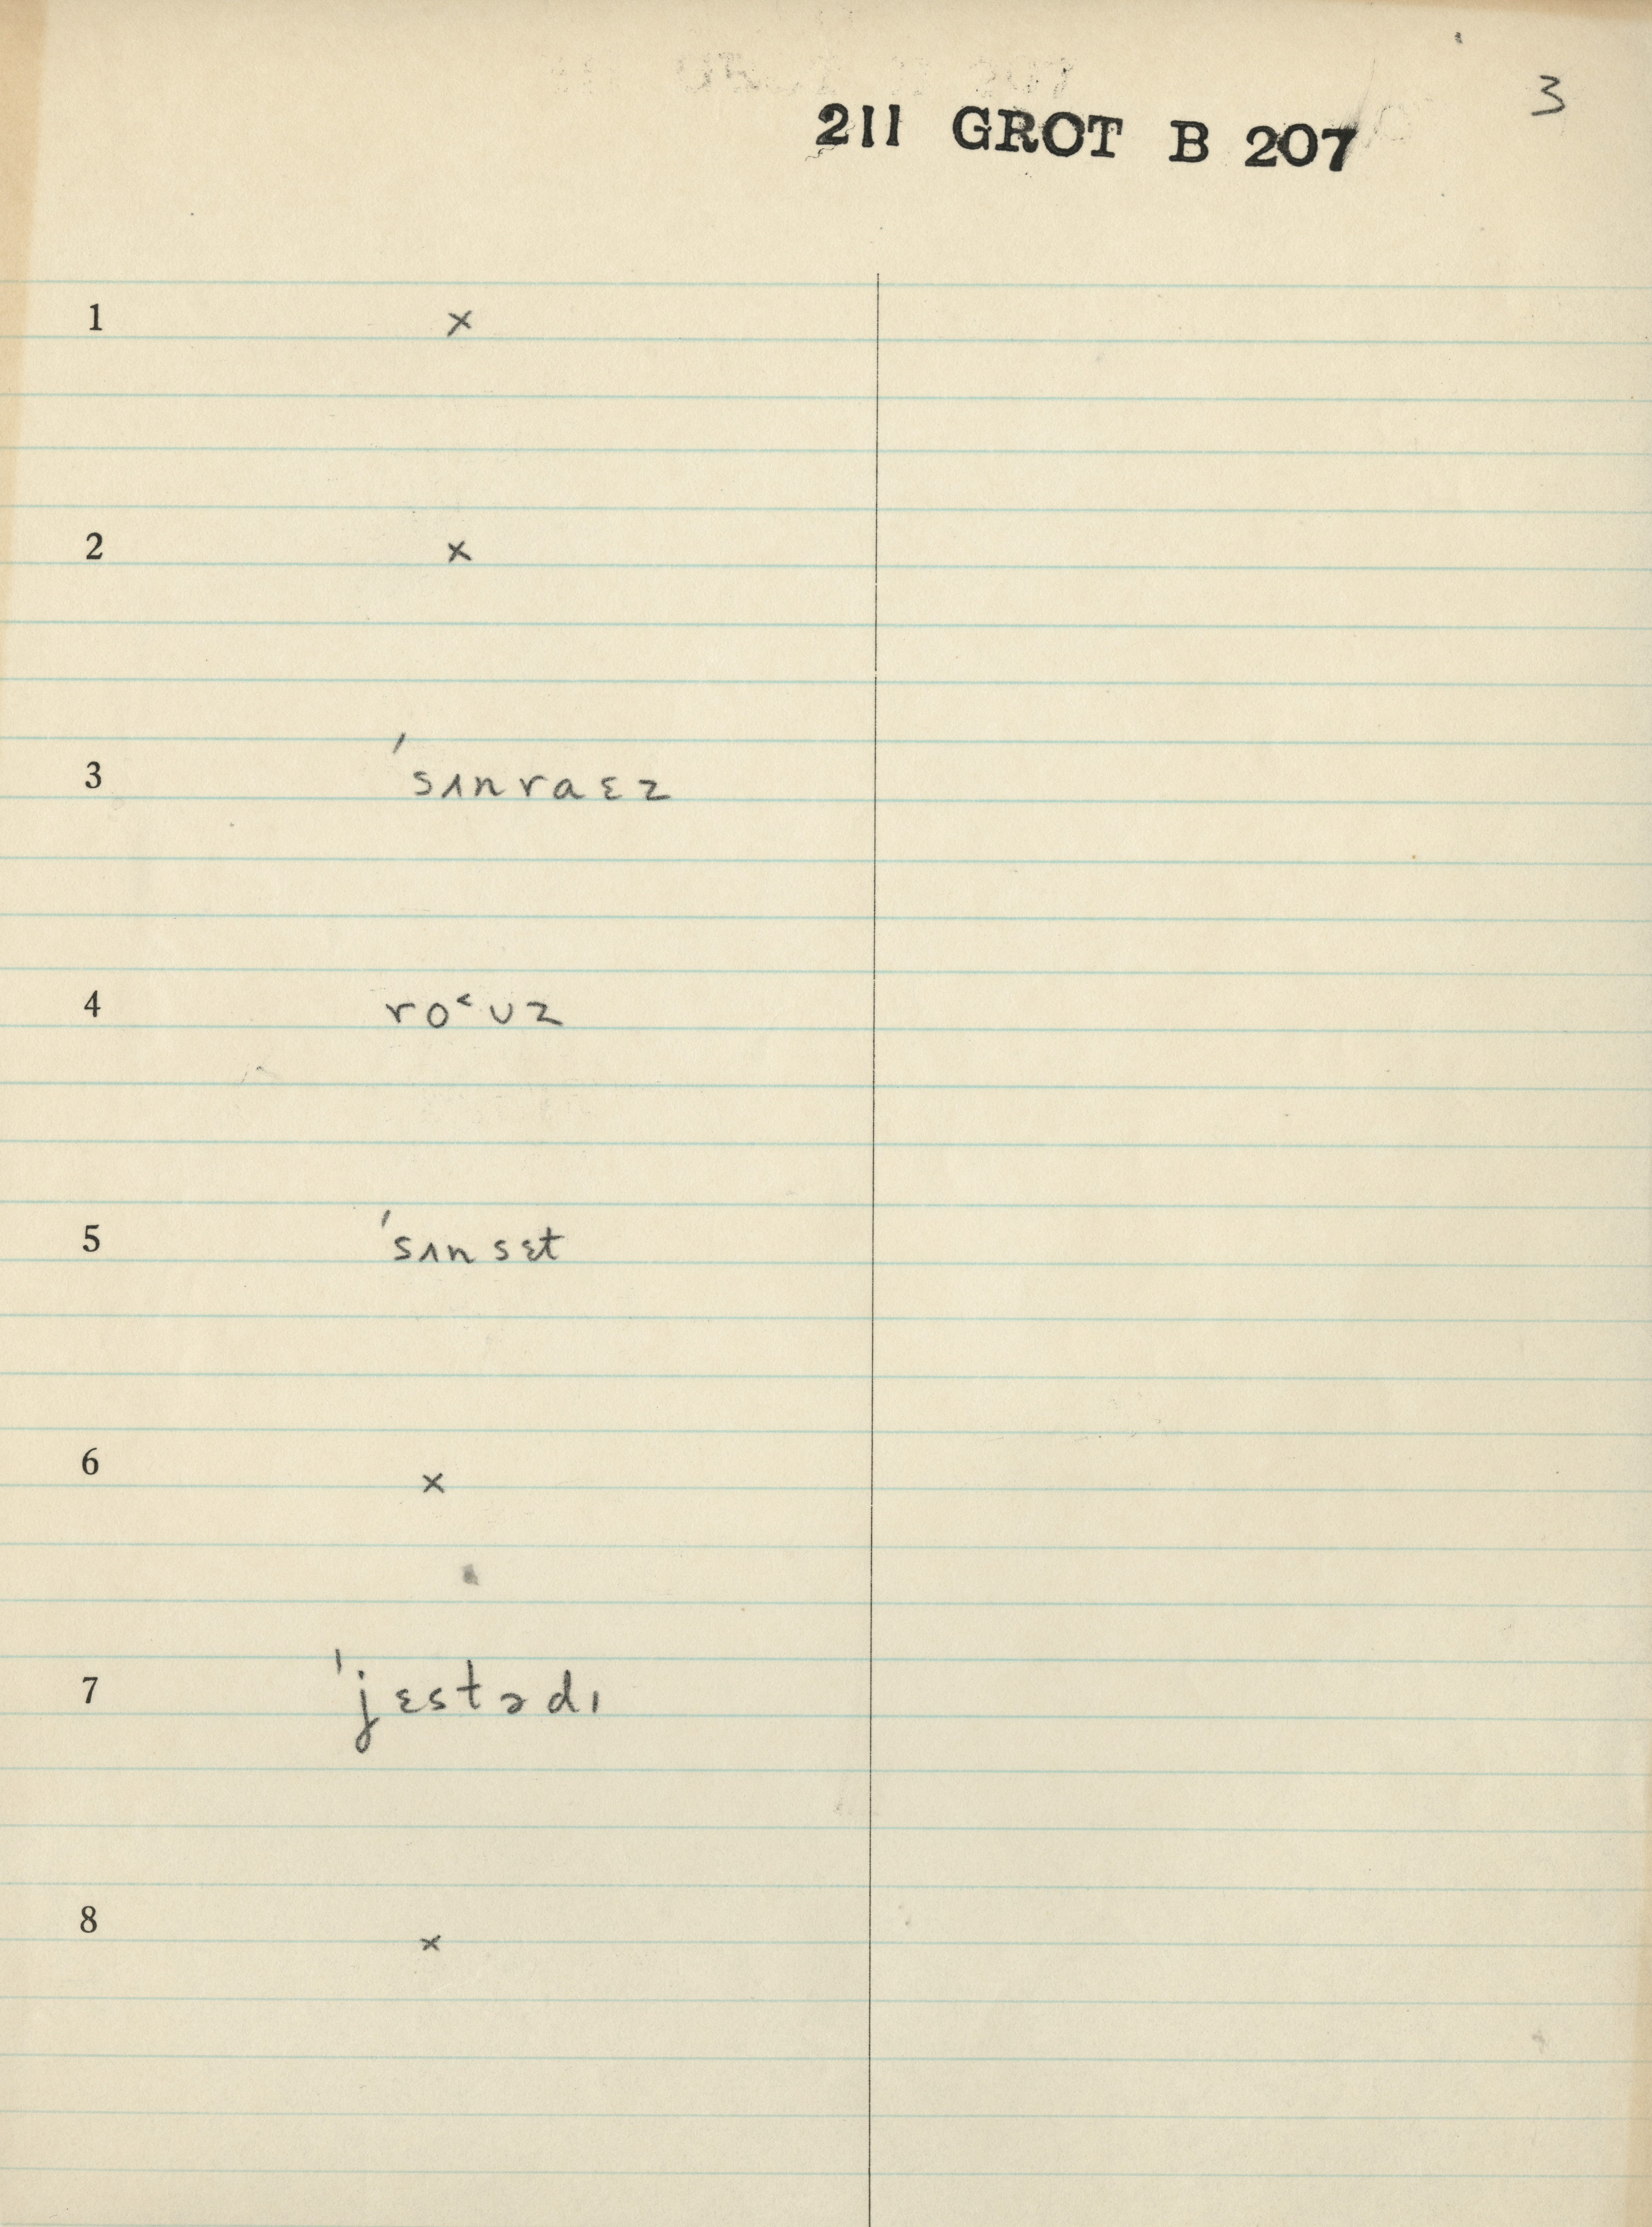 3
211 GROT B 207
1 ×
2 ×
3 ˈsʌnraɛz
4 ro˂ʊz
5 ˈsʌnsɛt
6 ×
7 ˈjɛstədɪ
8 ×